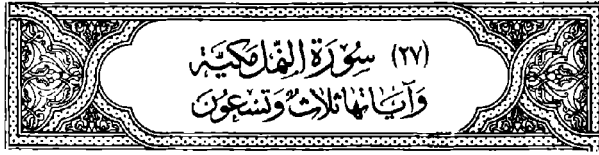 (٢٧) سُوْرَةُ النَّمْلِ مَكِيَّة
وَآيَاتُهَا ثَلَاثٌ وَتِسْعُونَ